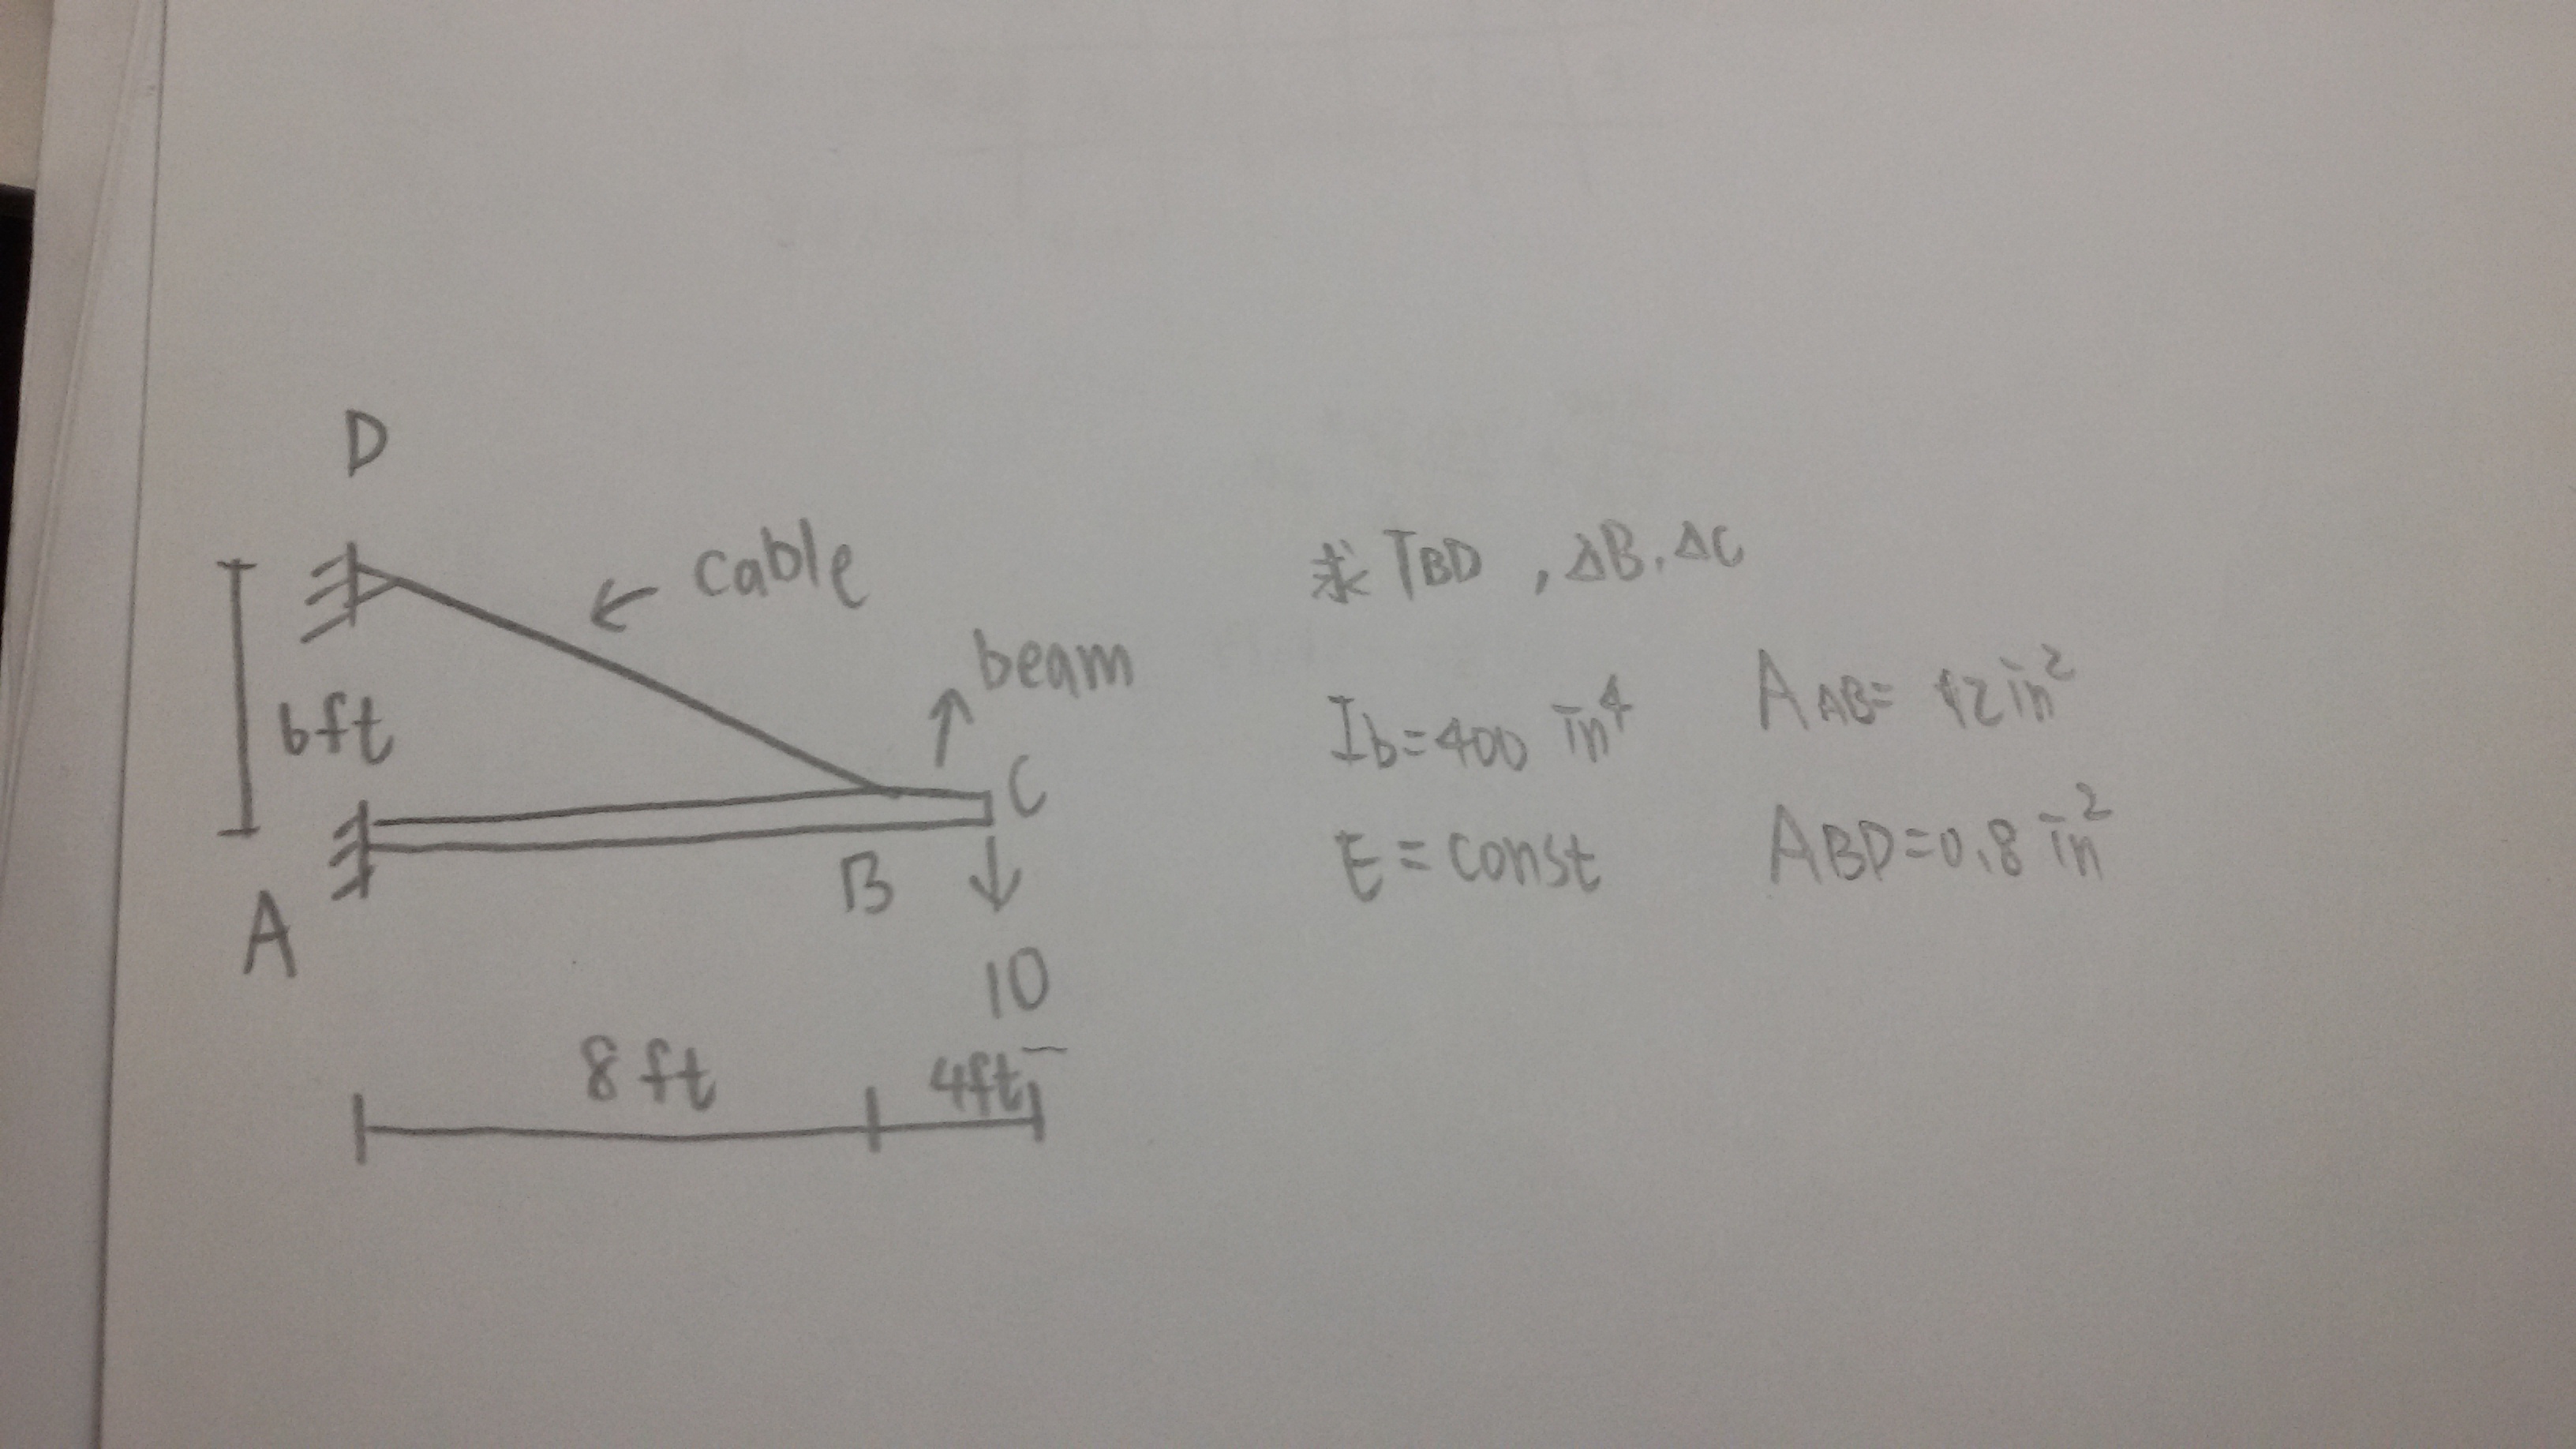 D
cable
beam
6ft
C
B
A
10
8 ft
4ft
求 TBD , ΔB, ΔC
Ib=400 in⁴
AAB= 12in²
E = const
ABD=0.8 in²